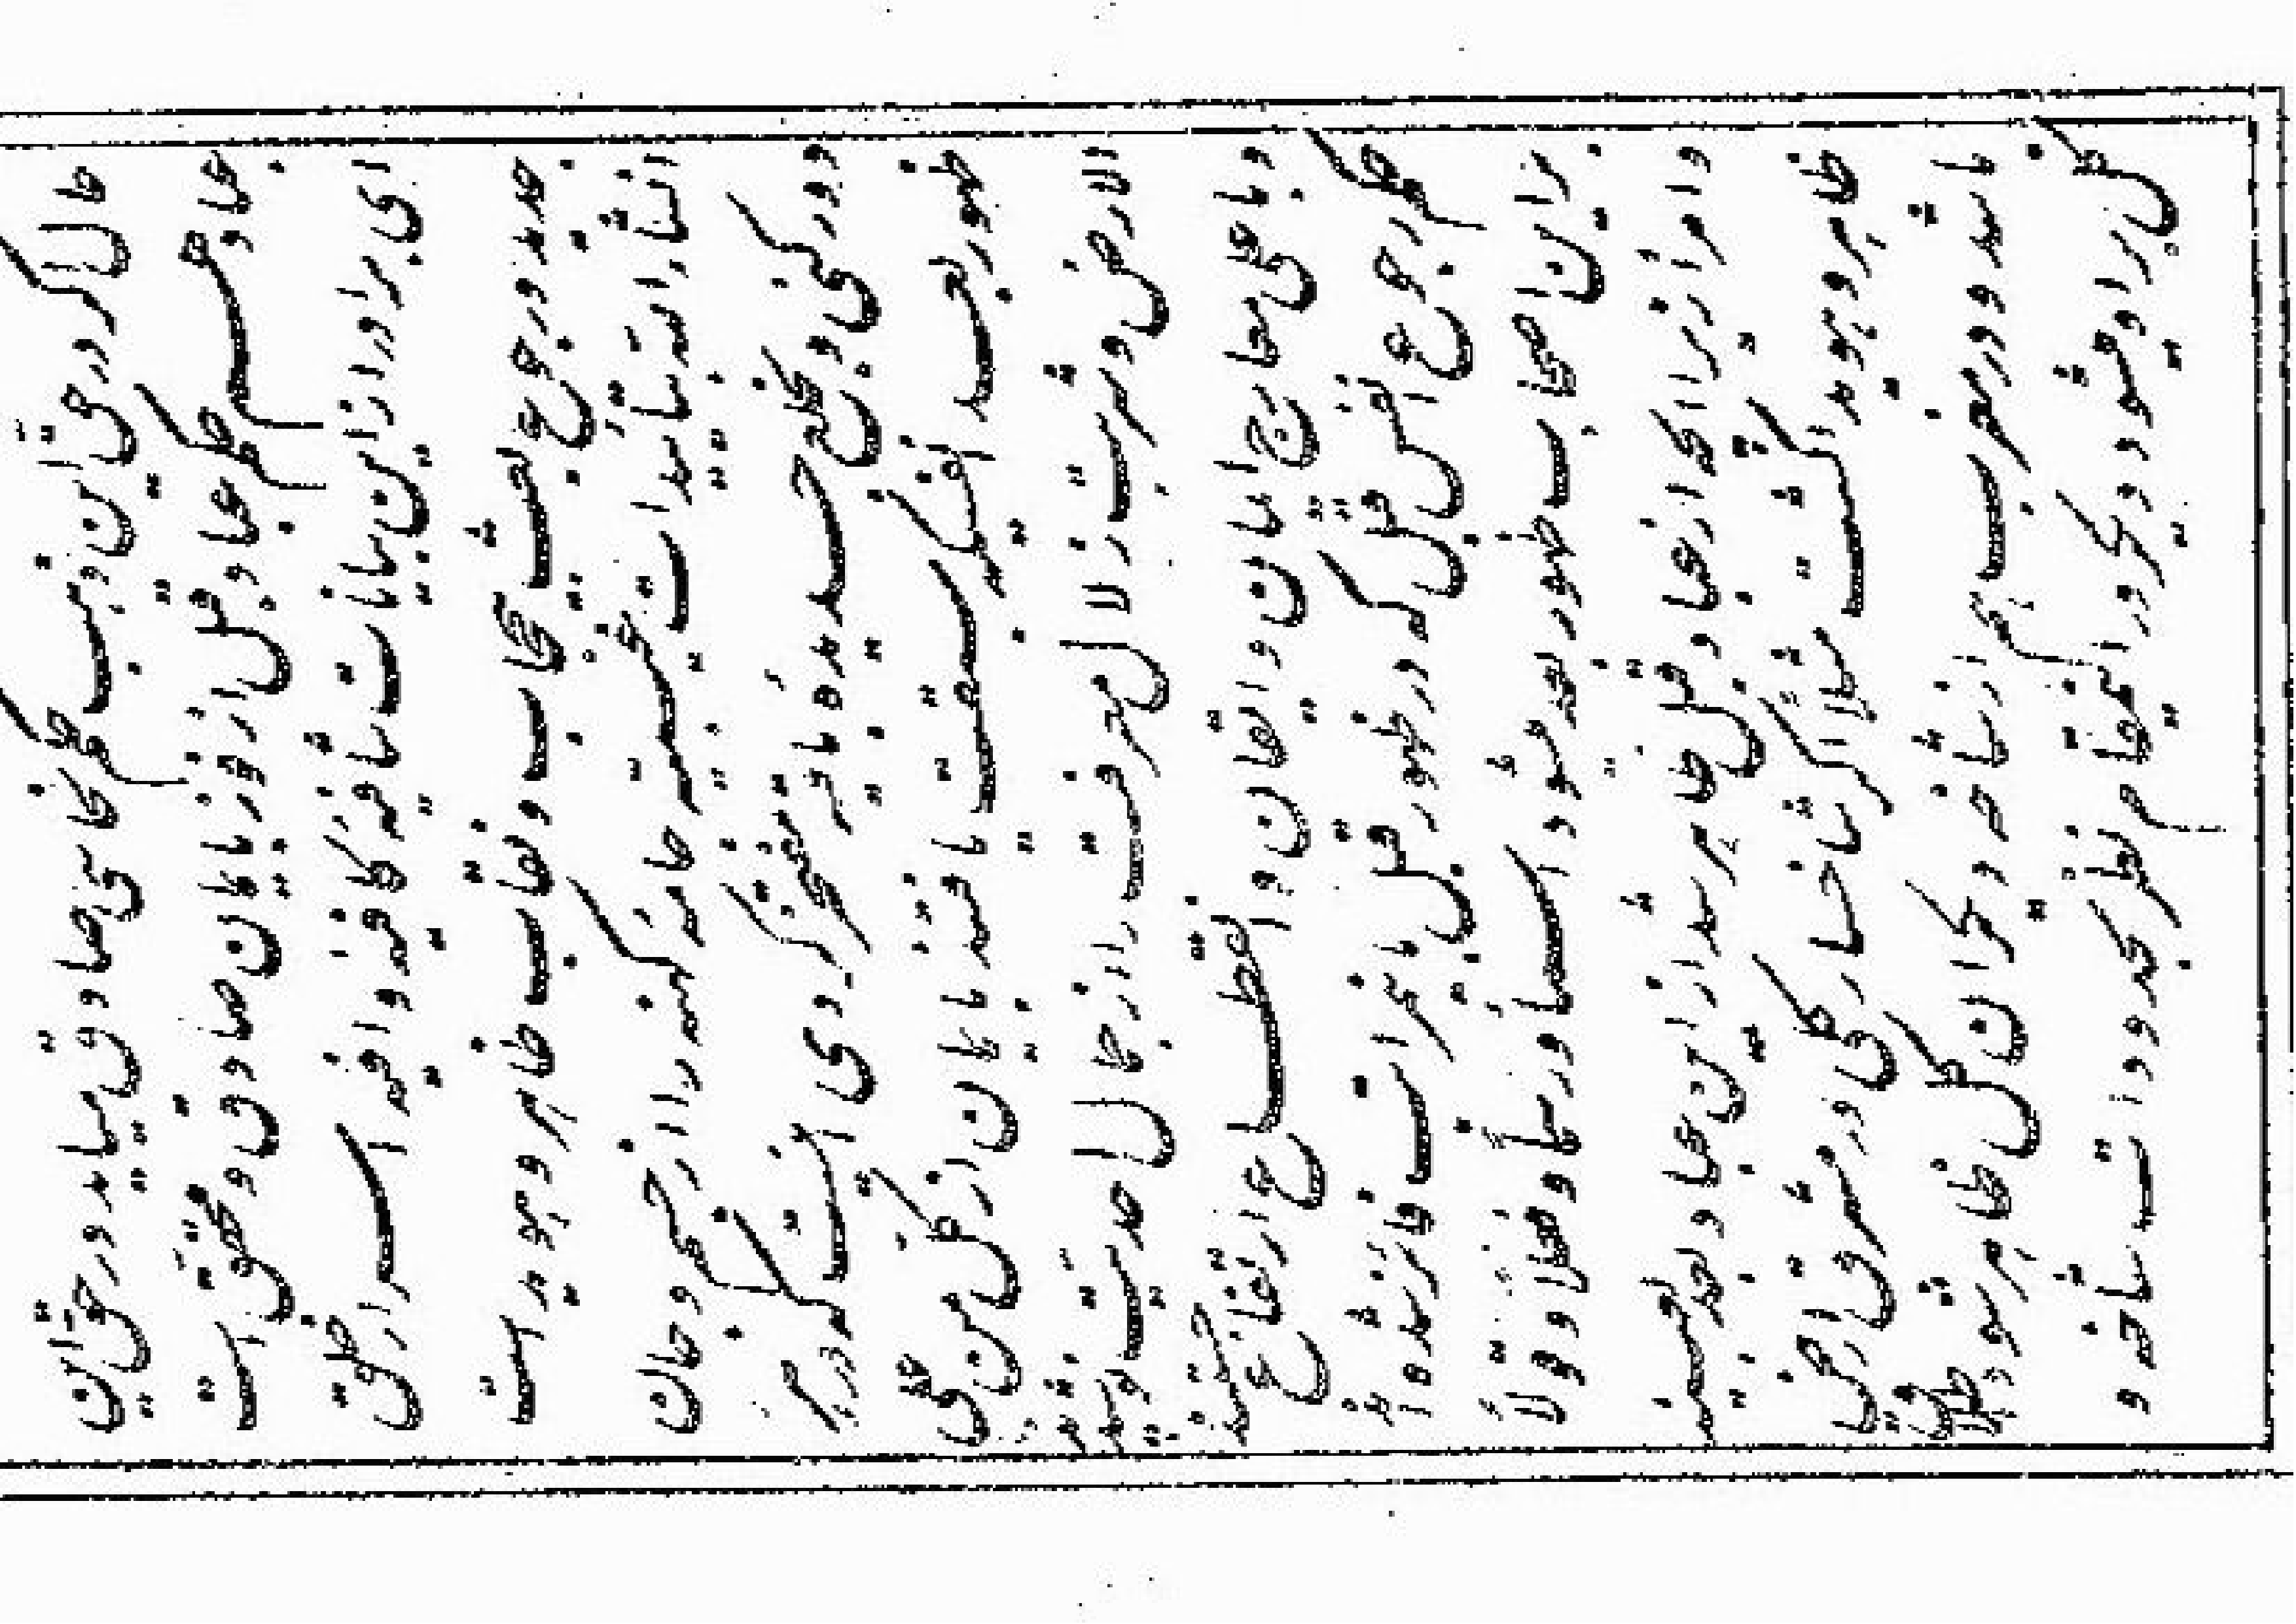 حال اگر در حق آن ذهب حکم نحاسی صادق میآید در حق آن
عباد هم حکم عباد قبل از فوز بایمان صادق و محقق است
ای برادر از این بیانات شافیه کافیه وافیه اسرار خلق
جدید و رجوع و بعث بی حجاب و نقاب ظاهر و هویدا است
انشاءالله بتأییدات غیبیه جامه کهنه را از جسم و جان
دور کنی و بخلع جدیده باقیه مفتخر گردی اینست که در هر
ظهور بعد انفسیکه سبقت یافتند بایمان از کل من علی
الارض و شربت زلال معرفت را از جمال احدیت نوشیدند
و باعلی معارج ایمان و ایقان و انقطاع ارتفاع جستند
حکم رجوع انفس قبل که در ظهور قبل باین مراتب فائز شده‌اند
بر این اصحاب ظهور بعد میشود اسماً و رسماً و فعلاً و قولاً
و امراً زیرا آنکه از عباد قبل ظاهر شد از این عباد بعد بعینه
ظاهر و هویدا گشت مثلاً اگر شاخسار گلی در مشرق ارض
باشد و در مغرب هم از شاخه دیگر آن گل ظاهر شود اطلاق
گل بر او میشود دیگر در این مقام نظر بحدودات شاخه و